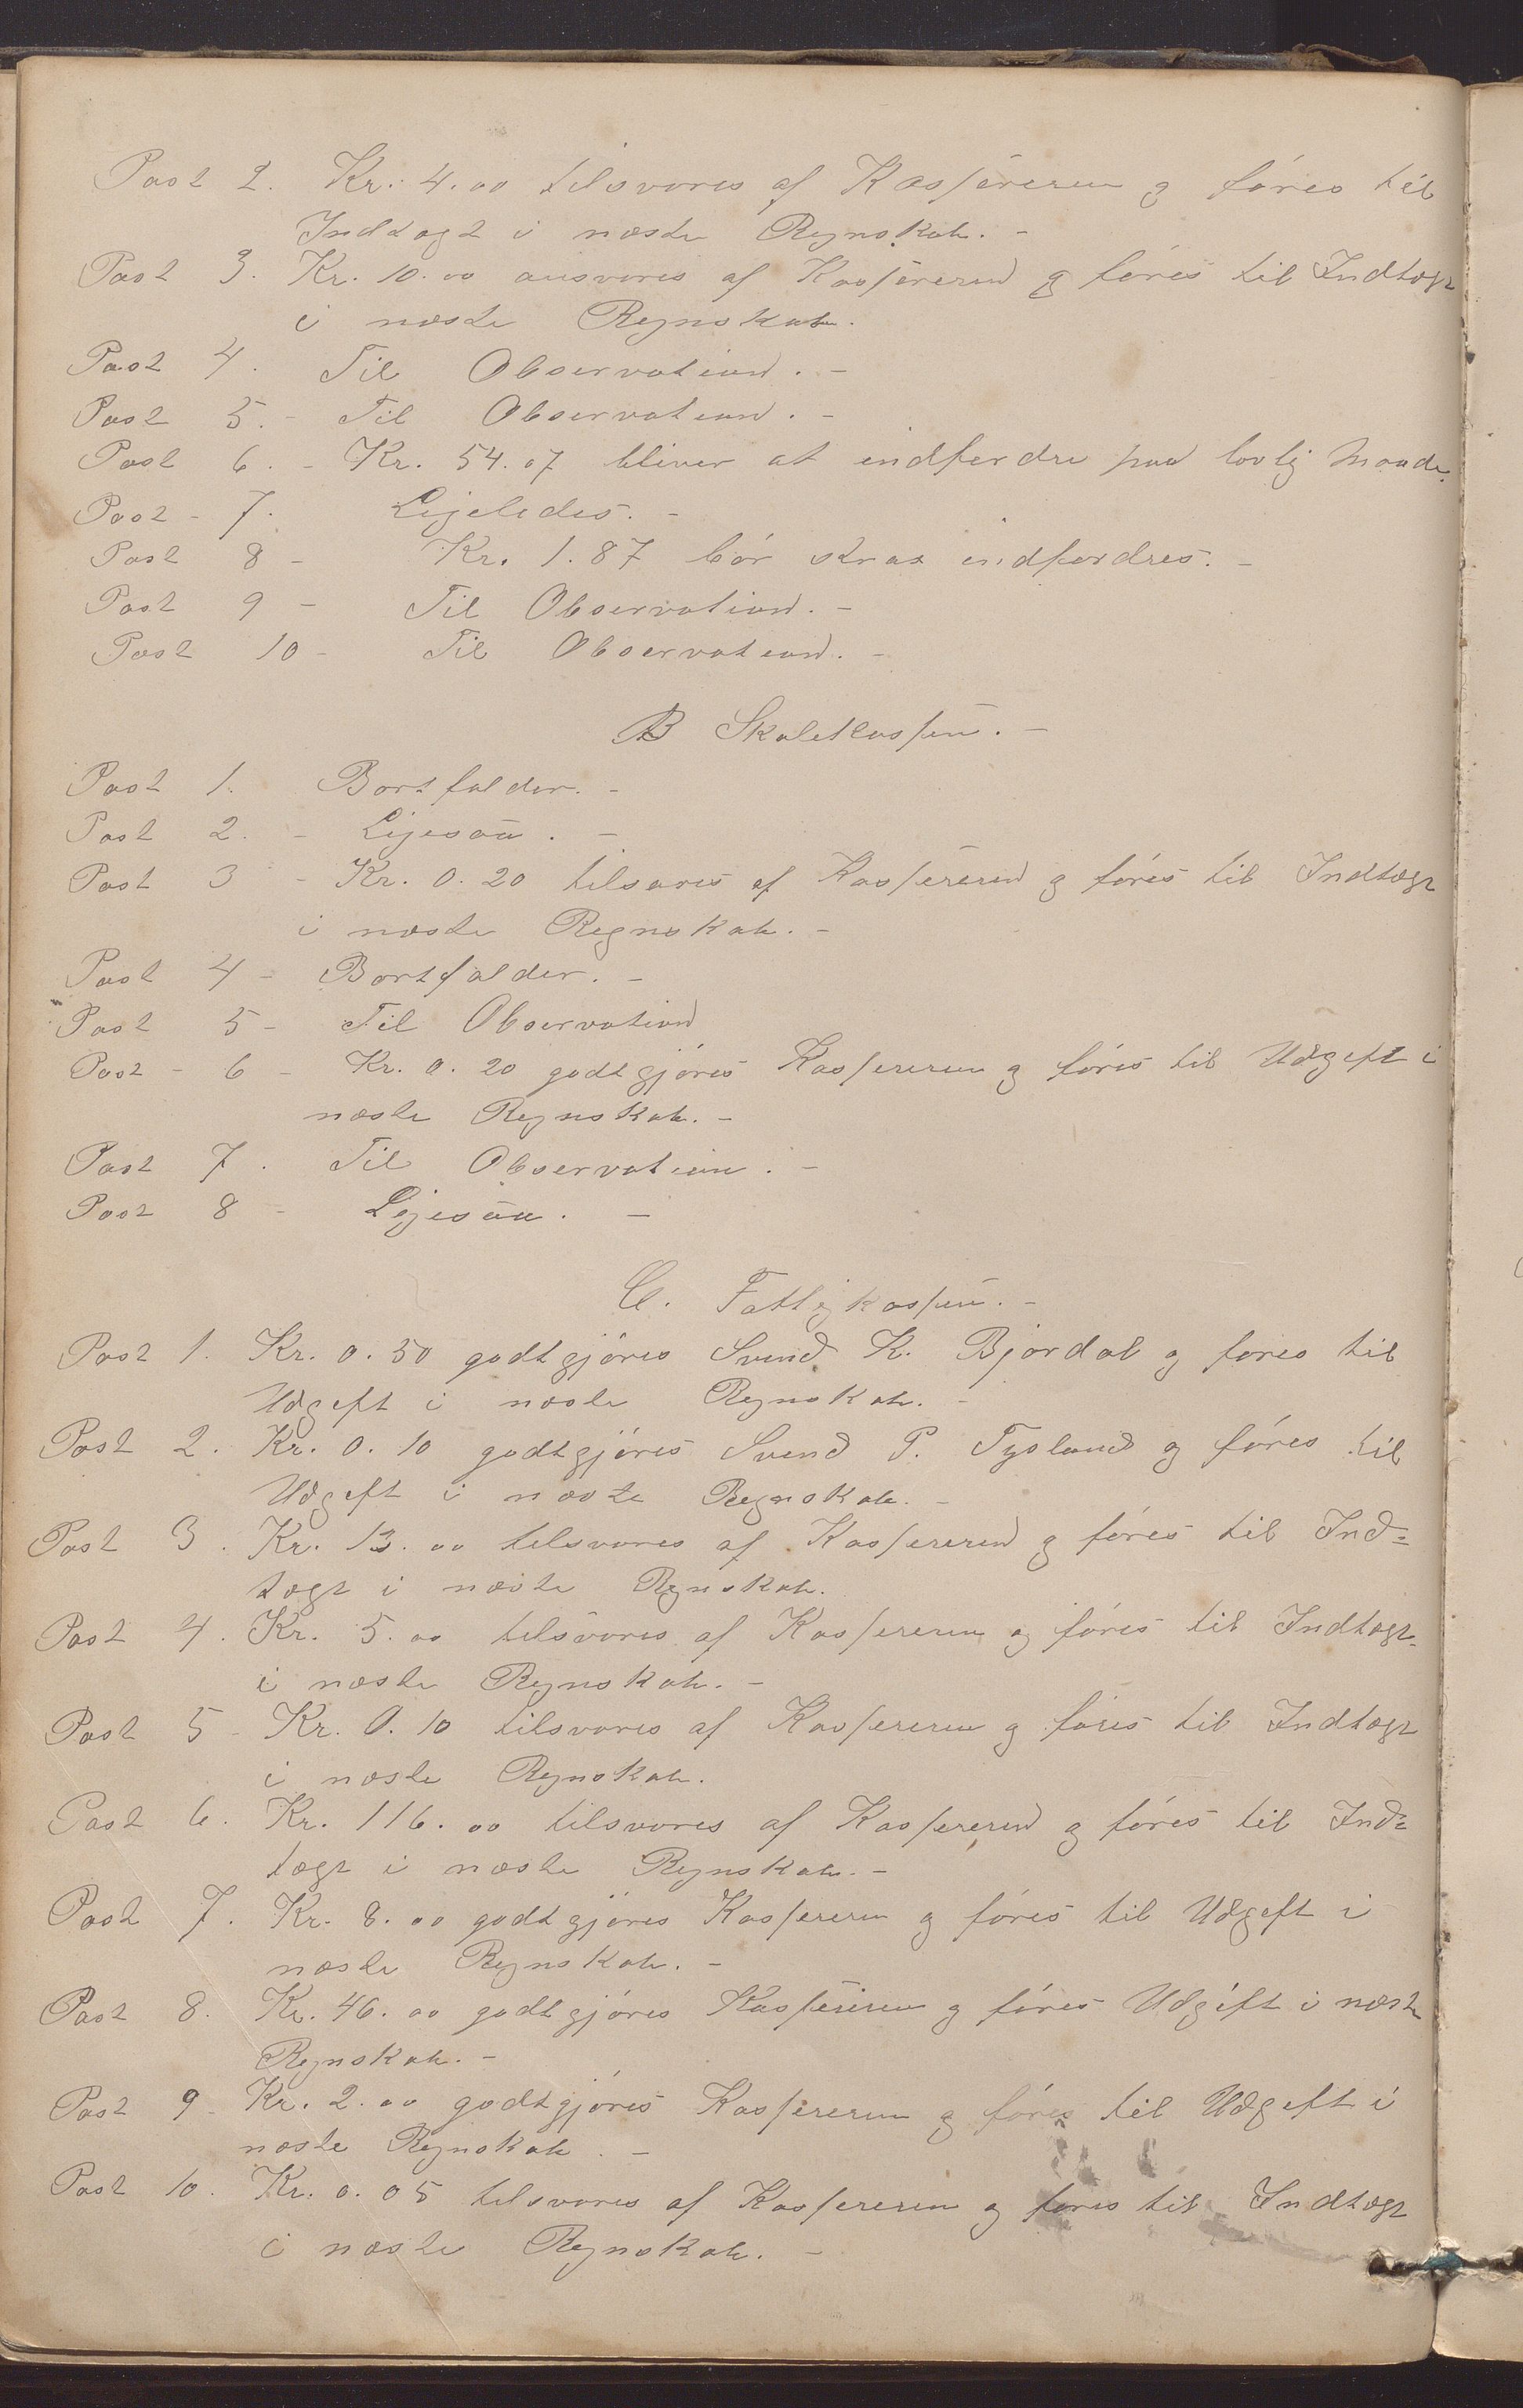 Post 2. Kr. 4.00 tilsvares af Kassereren og føres til
Indtægt i næste Regnskab. -
Post 3. Kr. 10.00 ansvares af Kassereren og føres til Indtægt
i næste Regnskab.
Post 4. Til Observation. -
Post 5. - Til Observation. -
Post 6. - Kr. 54.07 bliver at indfordre paa lovlig Maade.
Post - 7. Ligeledes. -
Post 8 - Kr. 1.87 bør strax indfordres. -
Post 9 - Til Observation. -
Post 10 - Til Observation. -
B Skolekassen. -
Post 1. Bortfalder. -
Post 2. - Ligesaa. -
Post 3 - Kr. 0.20 tilsvares af Kassereren og føres til Indtægt
i næste Regnskab. -
Post 4 - Bortfalder. -
Post 5 - Til Observation
Post - 6 - Kr. 0.20 godtgjøres Kassereren og føres til Udgift i
næste Regnskab. -
Post 7. Til Observation. -
Post 8 - Ligesaa. -
C. Fattigkassen. -
Post 1. Kr. 0.50 godtgjøres Svend K. Bjordal og føres til
Udgift i næste Regnskab. -
Post 2. Kr. 0.10 godtgjøres Svend P. Tysland og føres til
Udgift i næste Regnskab. -
Post 3. Kr. 13.00 tilsvares af Kassereren og føres til Ind=
tægt i næste Regnskab.
Post 4. Kr. 5.00 tilsvares af Kassereren og føres til Indtægt
i næste Regnskab. -
Post 5 - Kr. 0.10 tilsvares af Kassereren og føres til Indtægt
i næste Regnskab.
Post 6. Kr. 116.00 tilsvares af Kassereren og føres til Ind=
tægt i næste Regnskab. -
Post 7. Kr. 8.00 godtgjøres Kassereren og føres til Udgift i
næste Regnskab. -
Post 8. Kr. 46.00 godtgjøres Kassereren og føres Udgift i næste
Regnskab. -
Post 9 - Kr. 2.00 godtgjøres Kassereren og føres til Udgift i
næste Regnskab. -
Post 10. Kr. 0.05 tilsvares af Kassereren og føres til Indtægt
i næste Regnskab. -